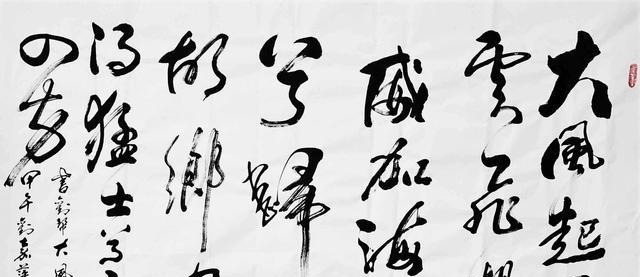 大風起
雲飛
威加海
兮歸
故鄉
得猛士
四方
書劉邦大風
甲午劉嘉